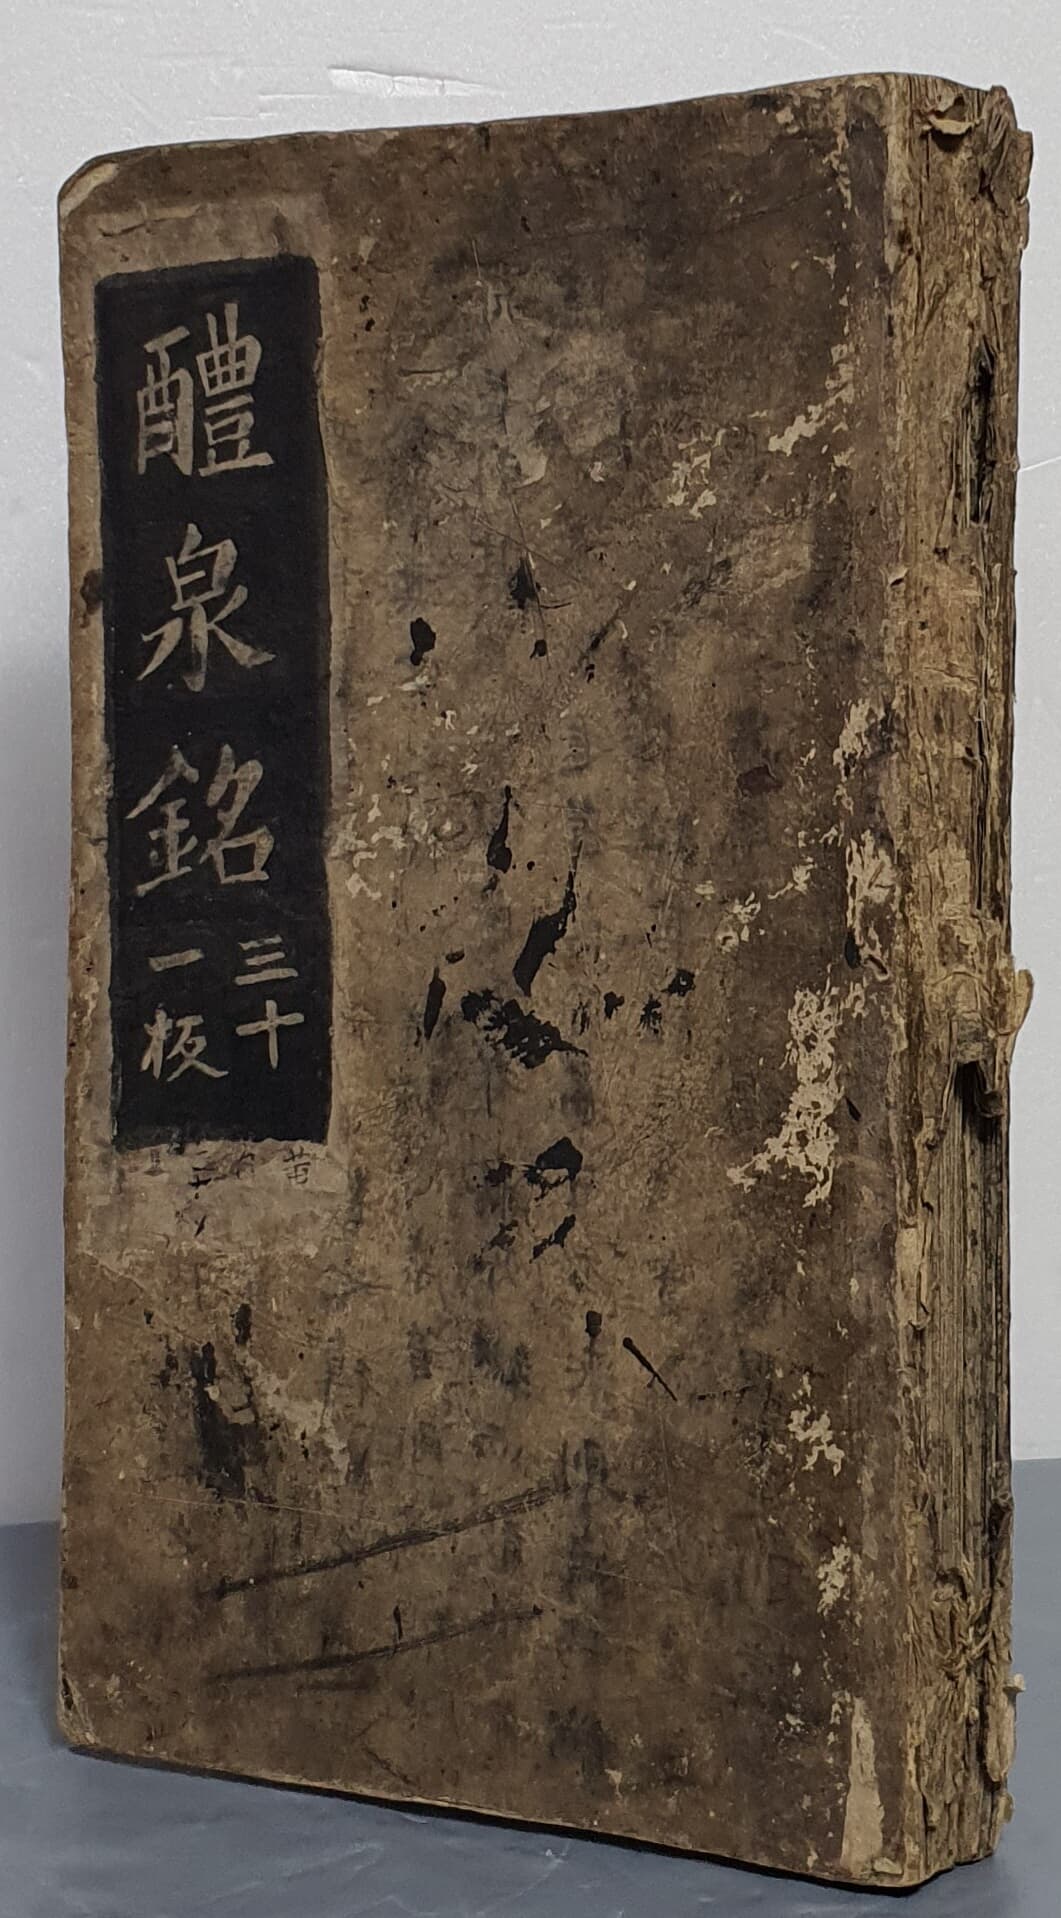 醴泉銘
三十
一板